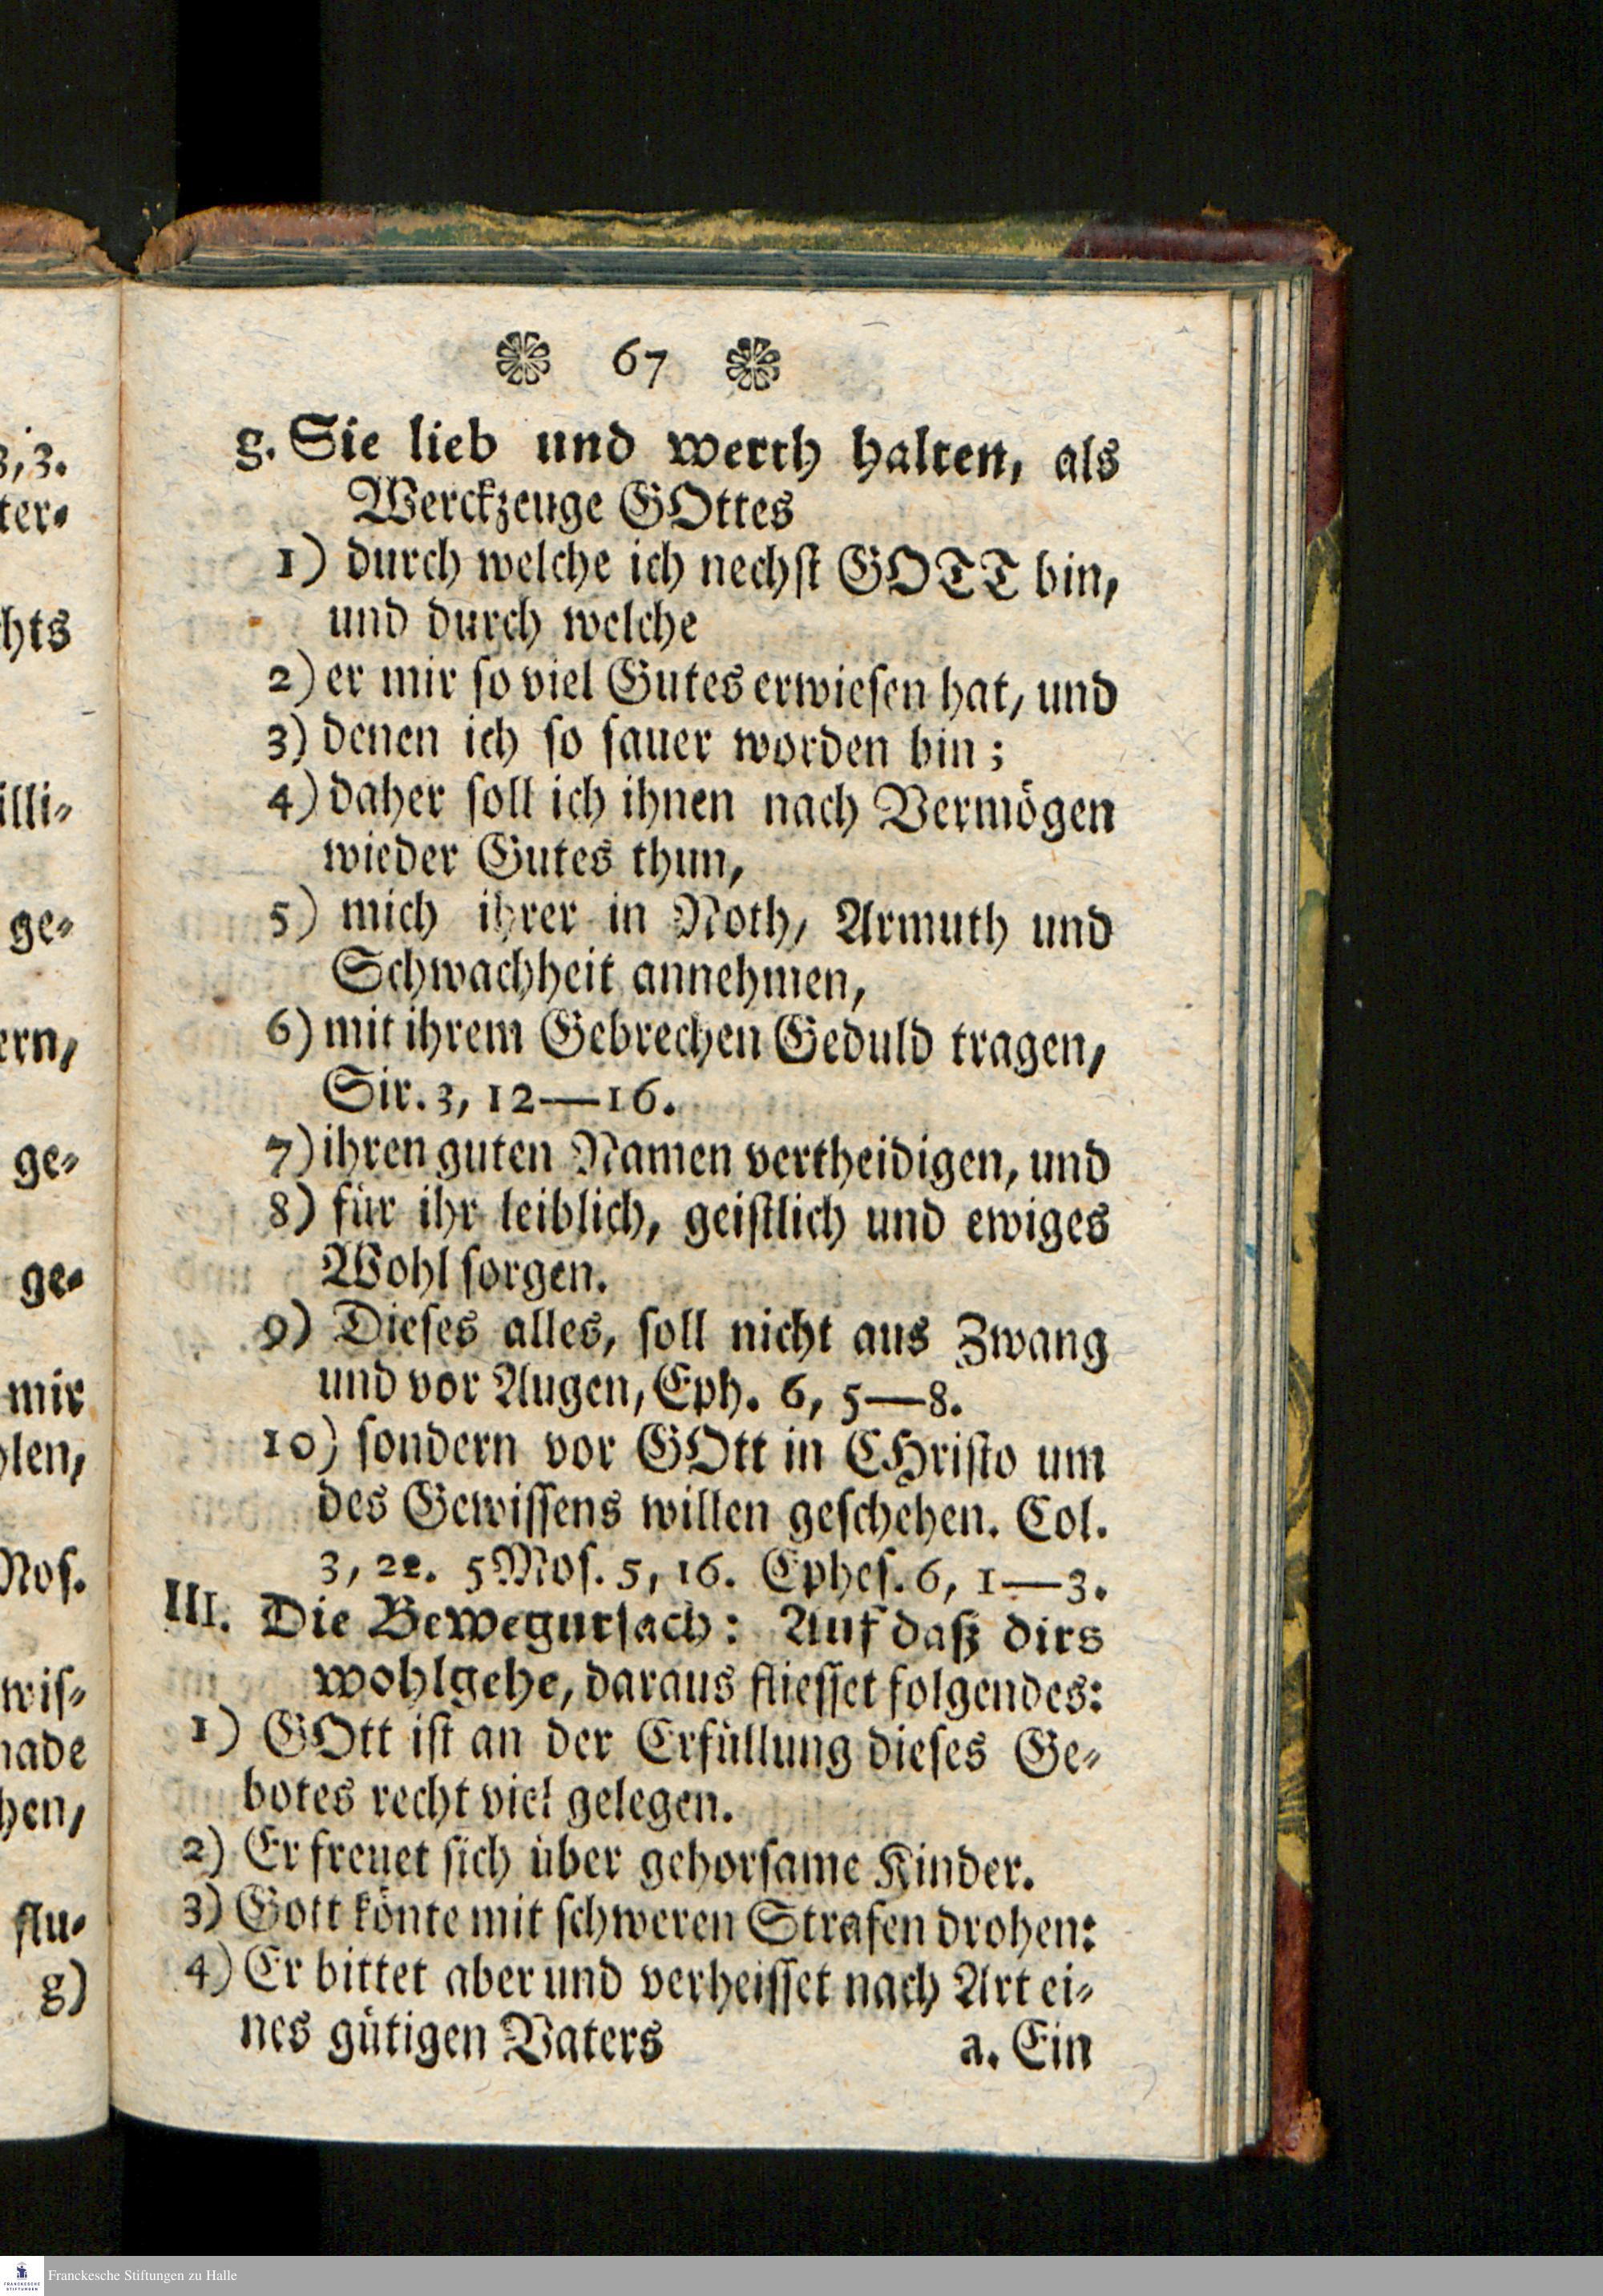 3,3.
ter⸗
hts
illi⸗
ge⸗
ern,
ge⸗
ge⸗
mir
len,
Mos.
wis⸗
nade
hen,
flu⸗
g)
67
g. Sie lieb und werth halten, als
Werckzeuge GOttes
1) durch welche ich nechſt GOTT bin,
und durch welche
2) er mir ſo viel Gutes erwieſen hat, und
3) denen ich ſo ſauer worden bin;
4) daher ſoll ich ihnen nach Vermögen
wieder Gutes thun,
5) mich ihrer in Noth, Armuth und
Schwachheit annehmen,
6) mit ihrem Gebrechen Geduld tragen,
Sir. 3, 12—16.
7) ihren guten Namen vertheidigen, und
8) für ihr leiblich, geiſtlich und ewiges
Wohl ſorgen.
9) Dieſes alles, ſoll nicht aus Zwang
und vor Augen, Eph. 6, 5—8.
10) ſondern vor GOtt in CHriſto um
des Gewiſſens willen geſchehen. Col.
3, 22. 5 Moſ. 5, 16. Epheſ. 6, 1—3.
III. Die Bewegurſach: Auf daß dirs
wohlgehe, daraus flieſſet folgendes:
1) GOtt iſt an der Erfüllung dieſes Ge⸗
botes recht viel gelegen.
2) Er freuet ſich über gehorſame Kinder.
3) Gott könte mit ſchweren Strafen drohen:
4) Er bittet aber und verheiſſet nach Art ei⸗
nes gütigen Vaters a. Ein
Franckesche Stiftungen zu Halle